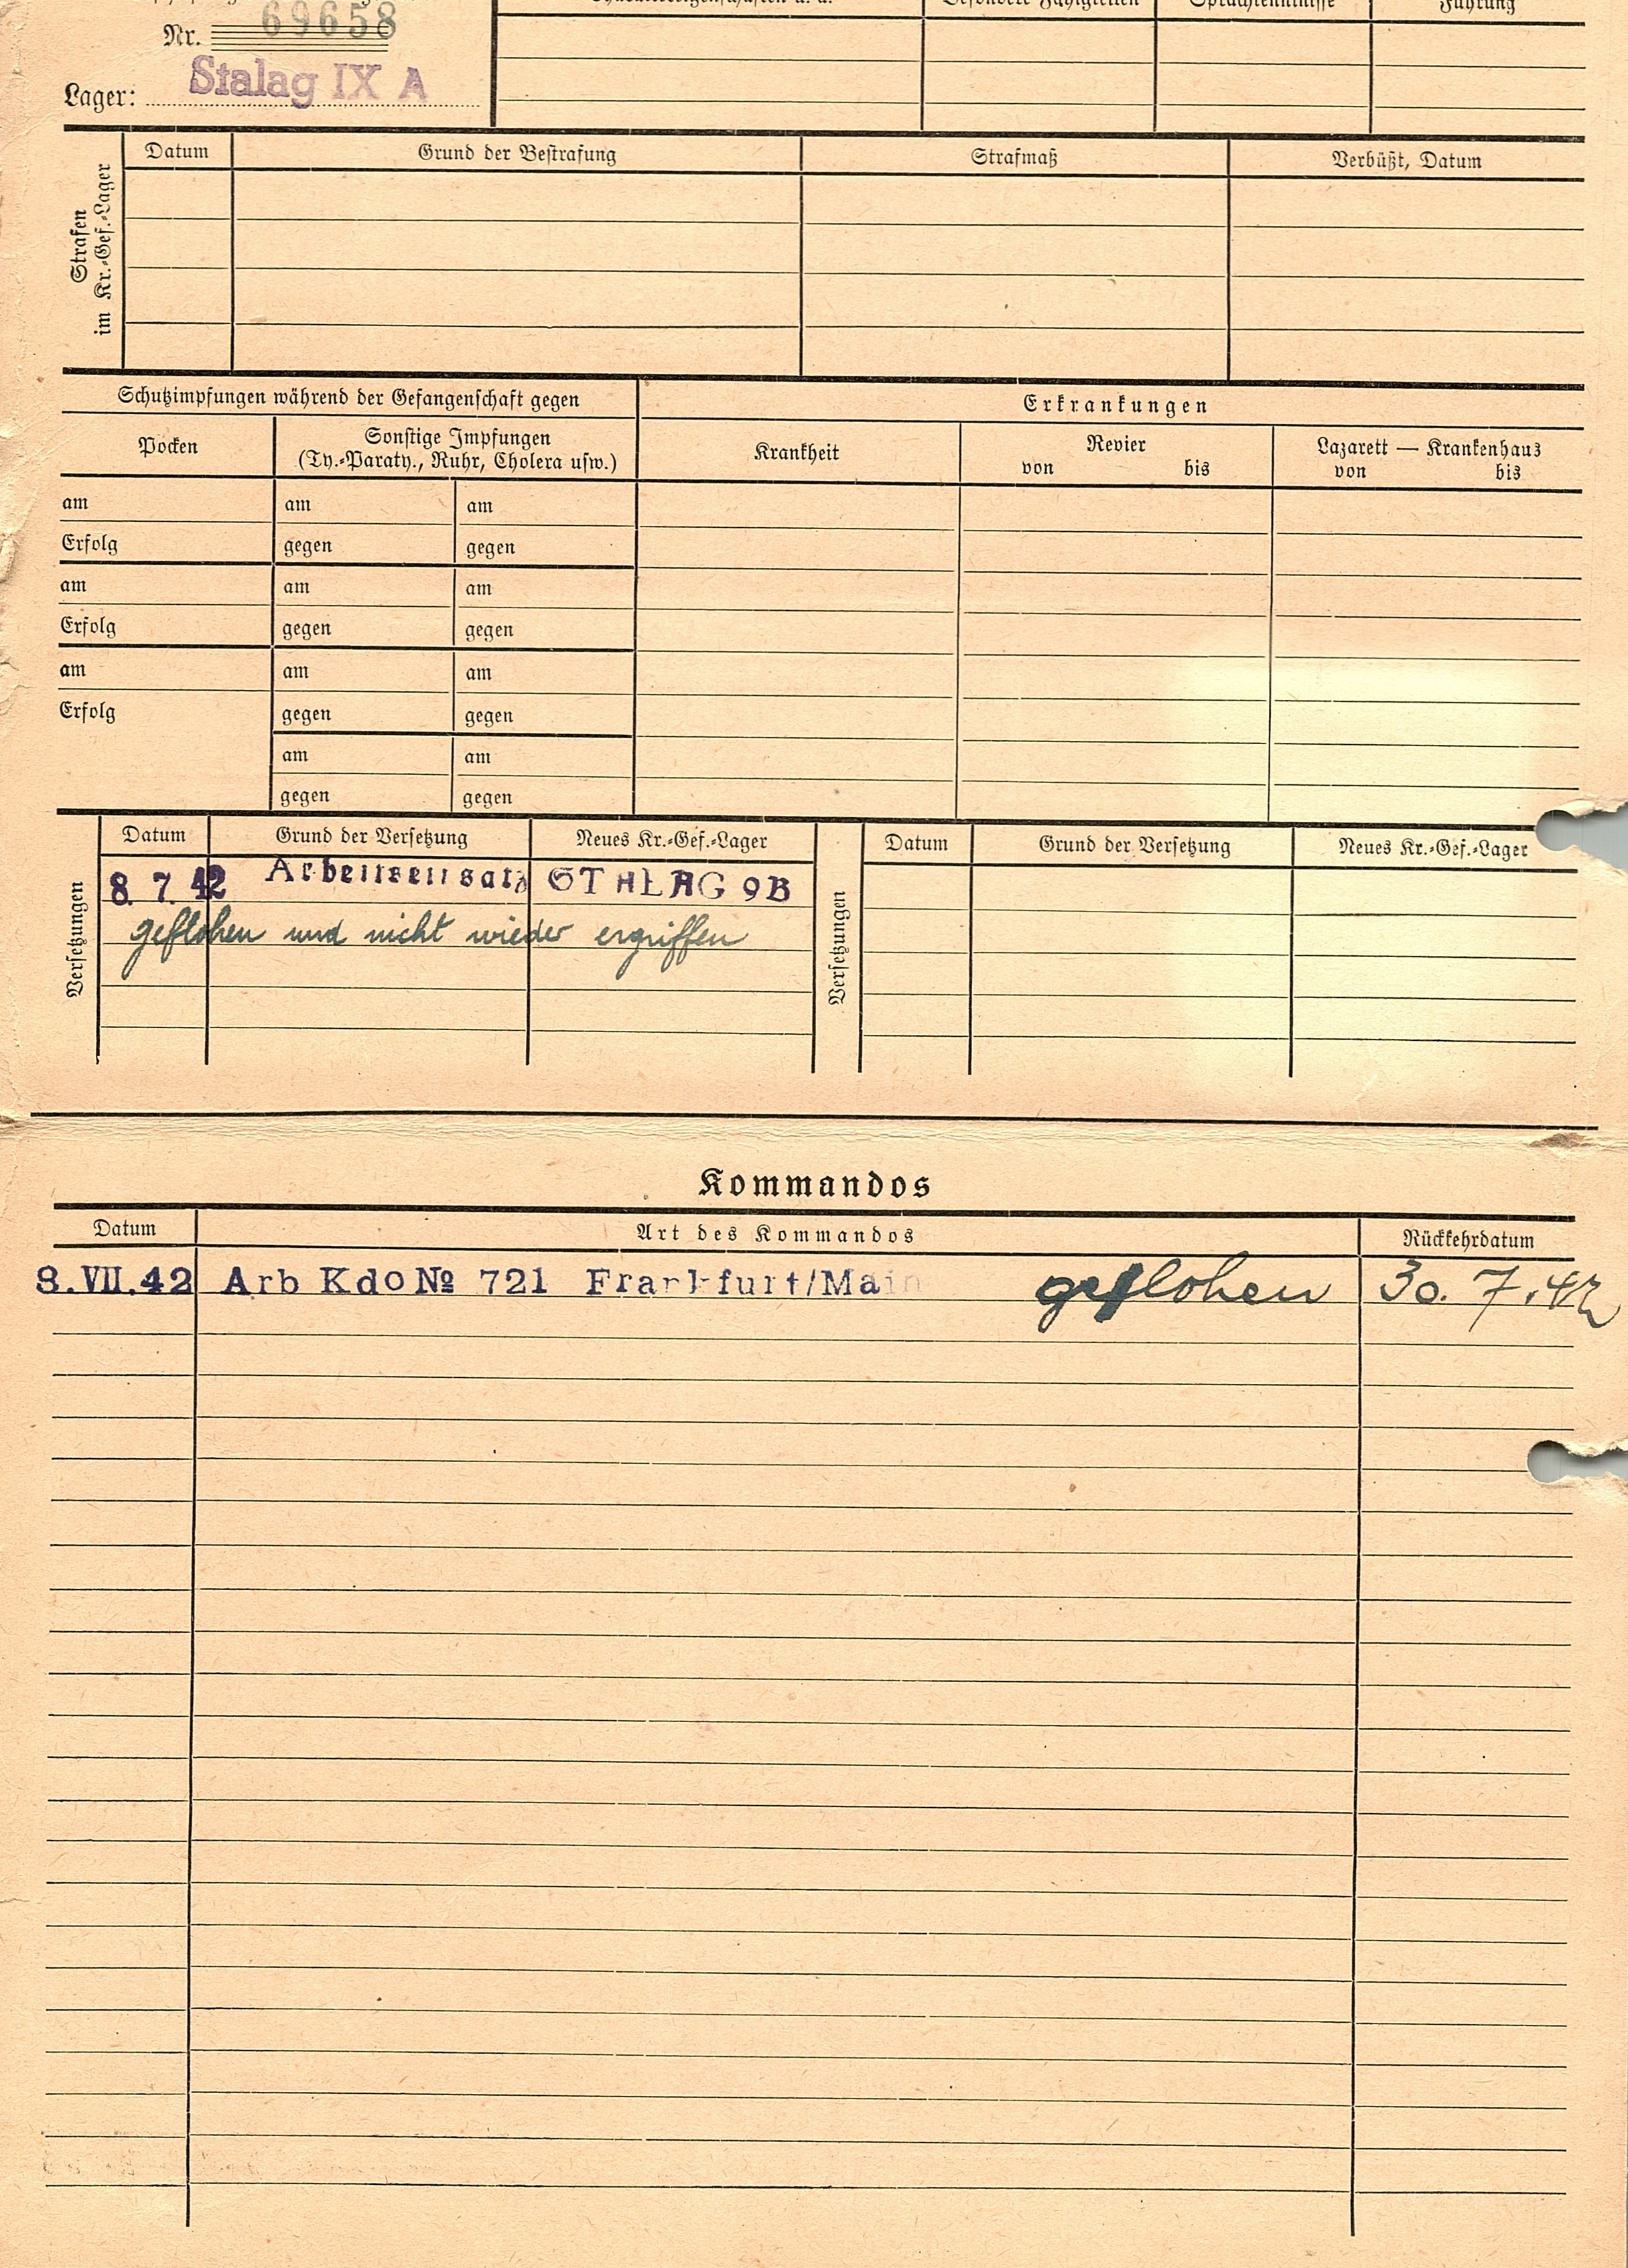 Besondere Fähigkeiten Sprachkenntnisse Führung
Nr. 69658
Lager: Stalag IX A
Strafen
im Kr.-Gef.-Lager
Datum Grund der Bestrafung Strafmaß Verbüßt, Datum
Schutzimpfungen während der Gefangenschaft gegen Erkrankungen
Pocken Sonstige Impfungen Krankheit Revier Lazarett — Krankenhaus
(Ty.-Paraty., Ruhr, Cholera usw.) von bis von bis
am am am
Erfolg gegen gegen
am am am
Erfolg gegen gegen
am am am
Erfolg gegen gegen
am am
gegen gegen
Versetzungen
Datum Grund der Versetzung Neues Kr.-Gef.-Lager
8. 7. 42 Arbeitseinsatz STALAG 9B
geflohen und nicht wieder ergriffen
Versetzungen
Datum Grund der Versetzung Neues Kr.-Gef.-Lager
Kommandos
Datum Art des Kommandos Rückkehrdatum
8.VII.42 Arb Kdo № 721 Frankfurt/Main geflohen 30. 7. 42